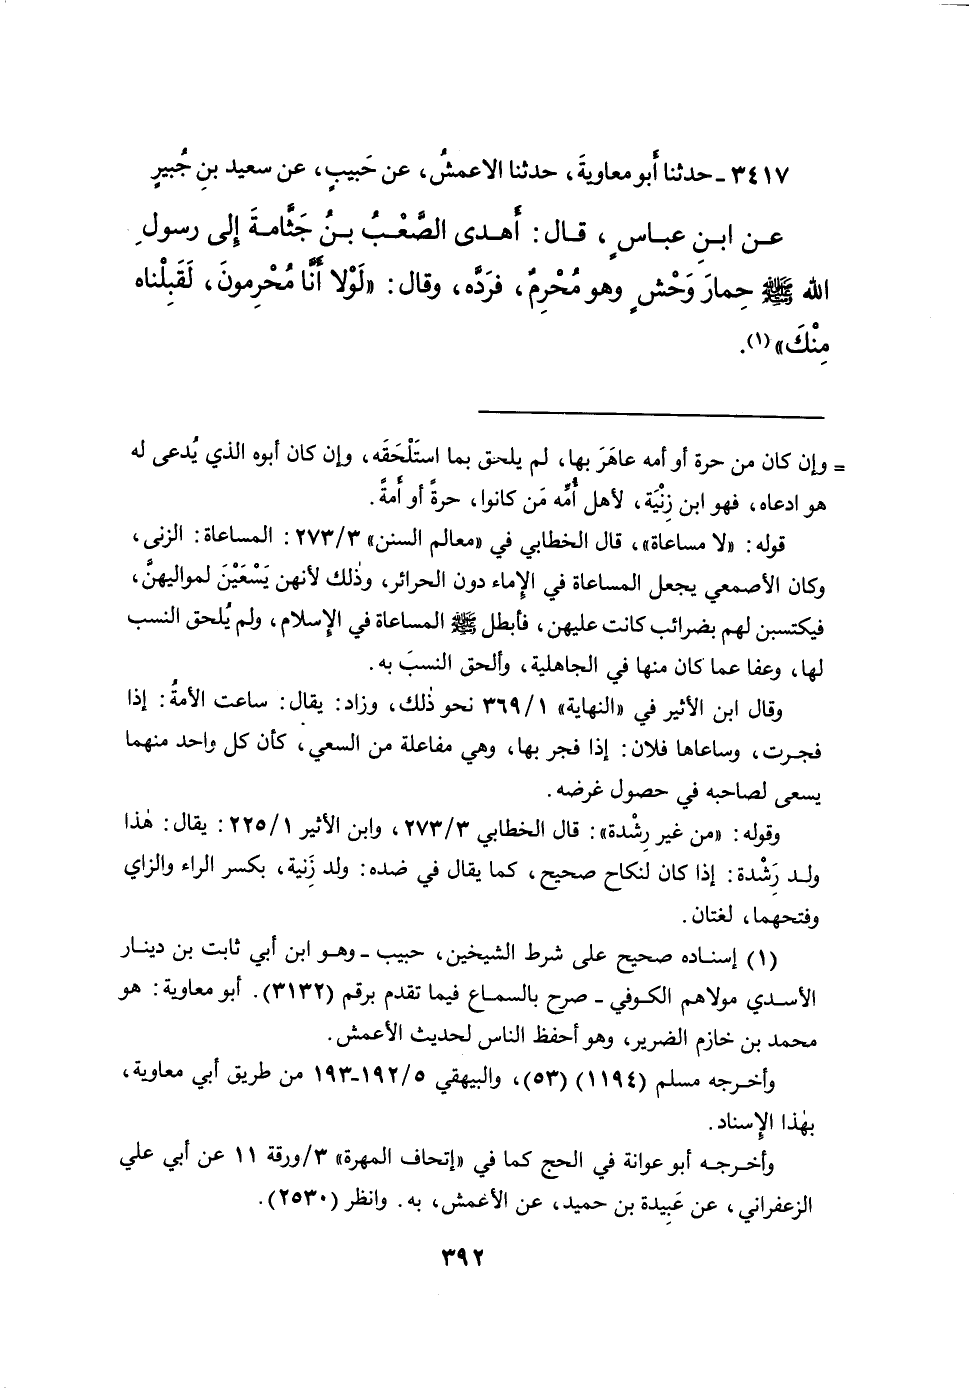 ٣٤١٧ ـ حدثنا أَبو معاويةَ، حدثنا الاعمشُ، عن حَبيبٍ، عن سعيد بنِ جُبيرٍ
عـن ابـنِ عبـاسٍ، قـال: أَهـدى الصَّعْـبُ بـنُ جَثَّامـةَ إِلى رسولِ
الله ﷺ حِمارَ وَحْشٍ وهو مُحْرِمٌ، فرَدَّه، وقال: «لَوْلا أَنَّا مُحْرِمونَ، لَقَبِلْناه
مِنْكَ»(١).
= وإن كان من حرة أو أمه عاهَرَ بها، لم يلحق بما استَلْحَقَه، وإن كان أبوه الذي يُدعى له
هو ادعاه، فهو ابن زِنْيَة، لأهل أُمِّه مَن كانوا، حرةً أو أَمةً.
قوله: «لا مساعاة»، قال الخطابي في «معالم السنن» ٢٧٣/٣: المساعاة: الزنى،
وكان الأصمعي يجعل المساعاة في الإماء دون الحرائر، وذٰلك لأنهن يَسْعَيْنَ لمواليهنَّ،
فيكتسبن لهم بضرائب كانت عليهن، فأبطل ﷺ المساعاة في الإسلام، ولم يُلحق النسب
لها، وعفا عما كان منها في الجاهلية، وألحق النسبَ به.
وقال ابن الأثير في «النهاية» ٣٦٩/١ نحو ذٰلك، وزاد: يقال: ساعت الأمةُ: إذا
فجـرت، وساعاها فلان: إذا فجر بها، وهي مفاعلة من السعي، كأن كل واحد منهما
يسعى لصاحبه في حصول غرضه.
وقوله: «من غير رِشْدة»: قال الخطابي ٢٧٣/٣، وابن الأثير ٢٢٥/١: يقال: هٰذا
ولـد رَِشْدة: إذا كان لنكاح صحيح، كما يقال في ضده: ولد زَِنية، بكسر الراء والزاي
وفتحهما، لغتان.
(١) إسنـاده صحيح على شرط الشيخين، حبيب ـ وهـو ابن أبي ثابت بن دينـار
الأسـدي مولاهم الكـوفي ـ صرح بالسماع فيما تقدم برقم (٣١٣٢). أبو معاوية: هو
محمد بن خازم الضرير، وهو أحفظ الناس لحديث الأعمش.
وأخـرجه مسلم (١١٩٤) (٥٣)، والبيهقي ١٩٢/٥-١٩٣ من طريق أبي معاوية،
بهٰذا الإسناد.
وأخـرجـه أبو عوانة في الحج كما في «إتحاف المهرة» ٣/ورقة ١١ عن أبي علي
الزعفراني، عن عَبِيدة بن حميد، عن الأعمش، به. وانظر (٢٥٣٠).
٣٩٢